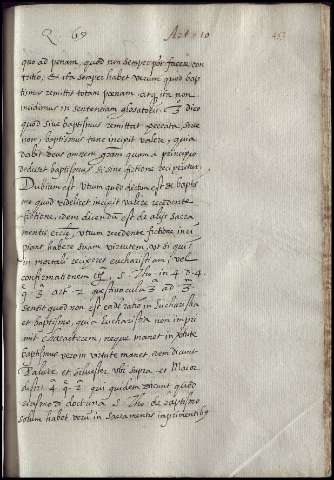 Q. 69 Art. 10
quo ad penam, quod non semper potest facere con
tritio, et ita semper habet verum quod bap
tismus remittit totam poenam, atque ita non
incidimus in sententiam glosatoris. dico
quod sive baptismus remittat peccata, sive
non, baptismus tunc incipit valere, quia
dabit Deus omnem gratiam quam a principio
dedisset baptismus si sine fictione reciperetur.
Dubium est utrum quod dictum est de baptis
mo quod videlicet incipit valere recedente
fictione, idem dicendum est de aliis sacra
mentis, utrum recedente fictione inci
piant habere suam virtutem, ut si quis
in mortali reciperet eucharistiam, vel
confirmationem S. Tho. in 4 d. 4.
q. 3 art. 2 quaestiuncula 3 ad 3
sentit quod non est eadem ratio in Eucharistia
et baptismo, quia Eucharistia non impri
mit characterem, neque manet in virtute
baptismus vero in virtute manet. idem dicunt
Palude et Silvester ubi supra et Maior
dist. 4 q. 2 qui quidem dicunt quod
doctrina S. Tho. de baptismo
solum habet verum in Sacramentis imprimentibus